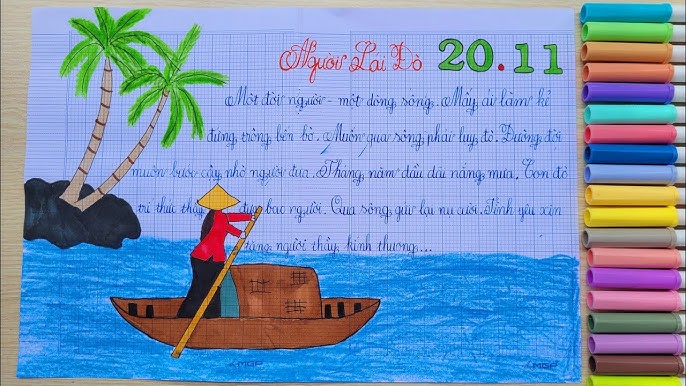 Người Lái Đò 20.11
Một đời người - một dòng sông. Mấy ai làm kẻ
đứng trông bến bờ. Muốn qua sông phải lụy đò. Đường đời
muôn bước cậy nhờ người đưa. Tháng năm dầu dãi nắng mưa. Con đò
trí thức thầy đưa bao người. Qua sông gửi lại nụ cười. Tình yêu xin
tặng người thầy kính thương...
MGP MGP